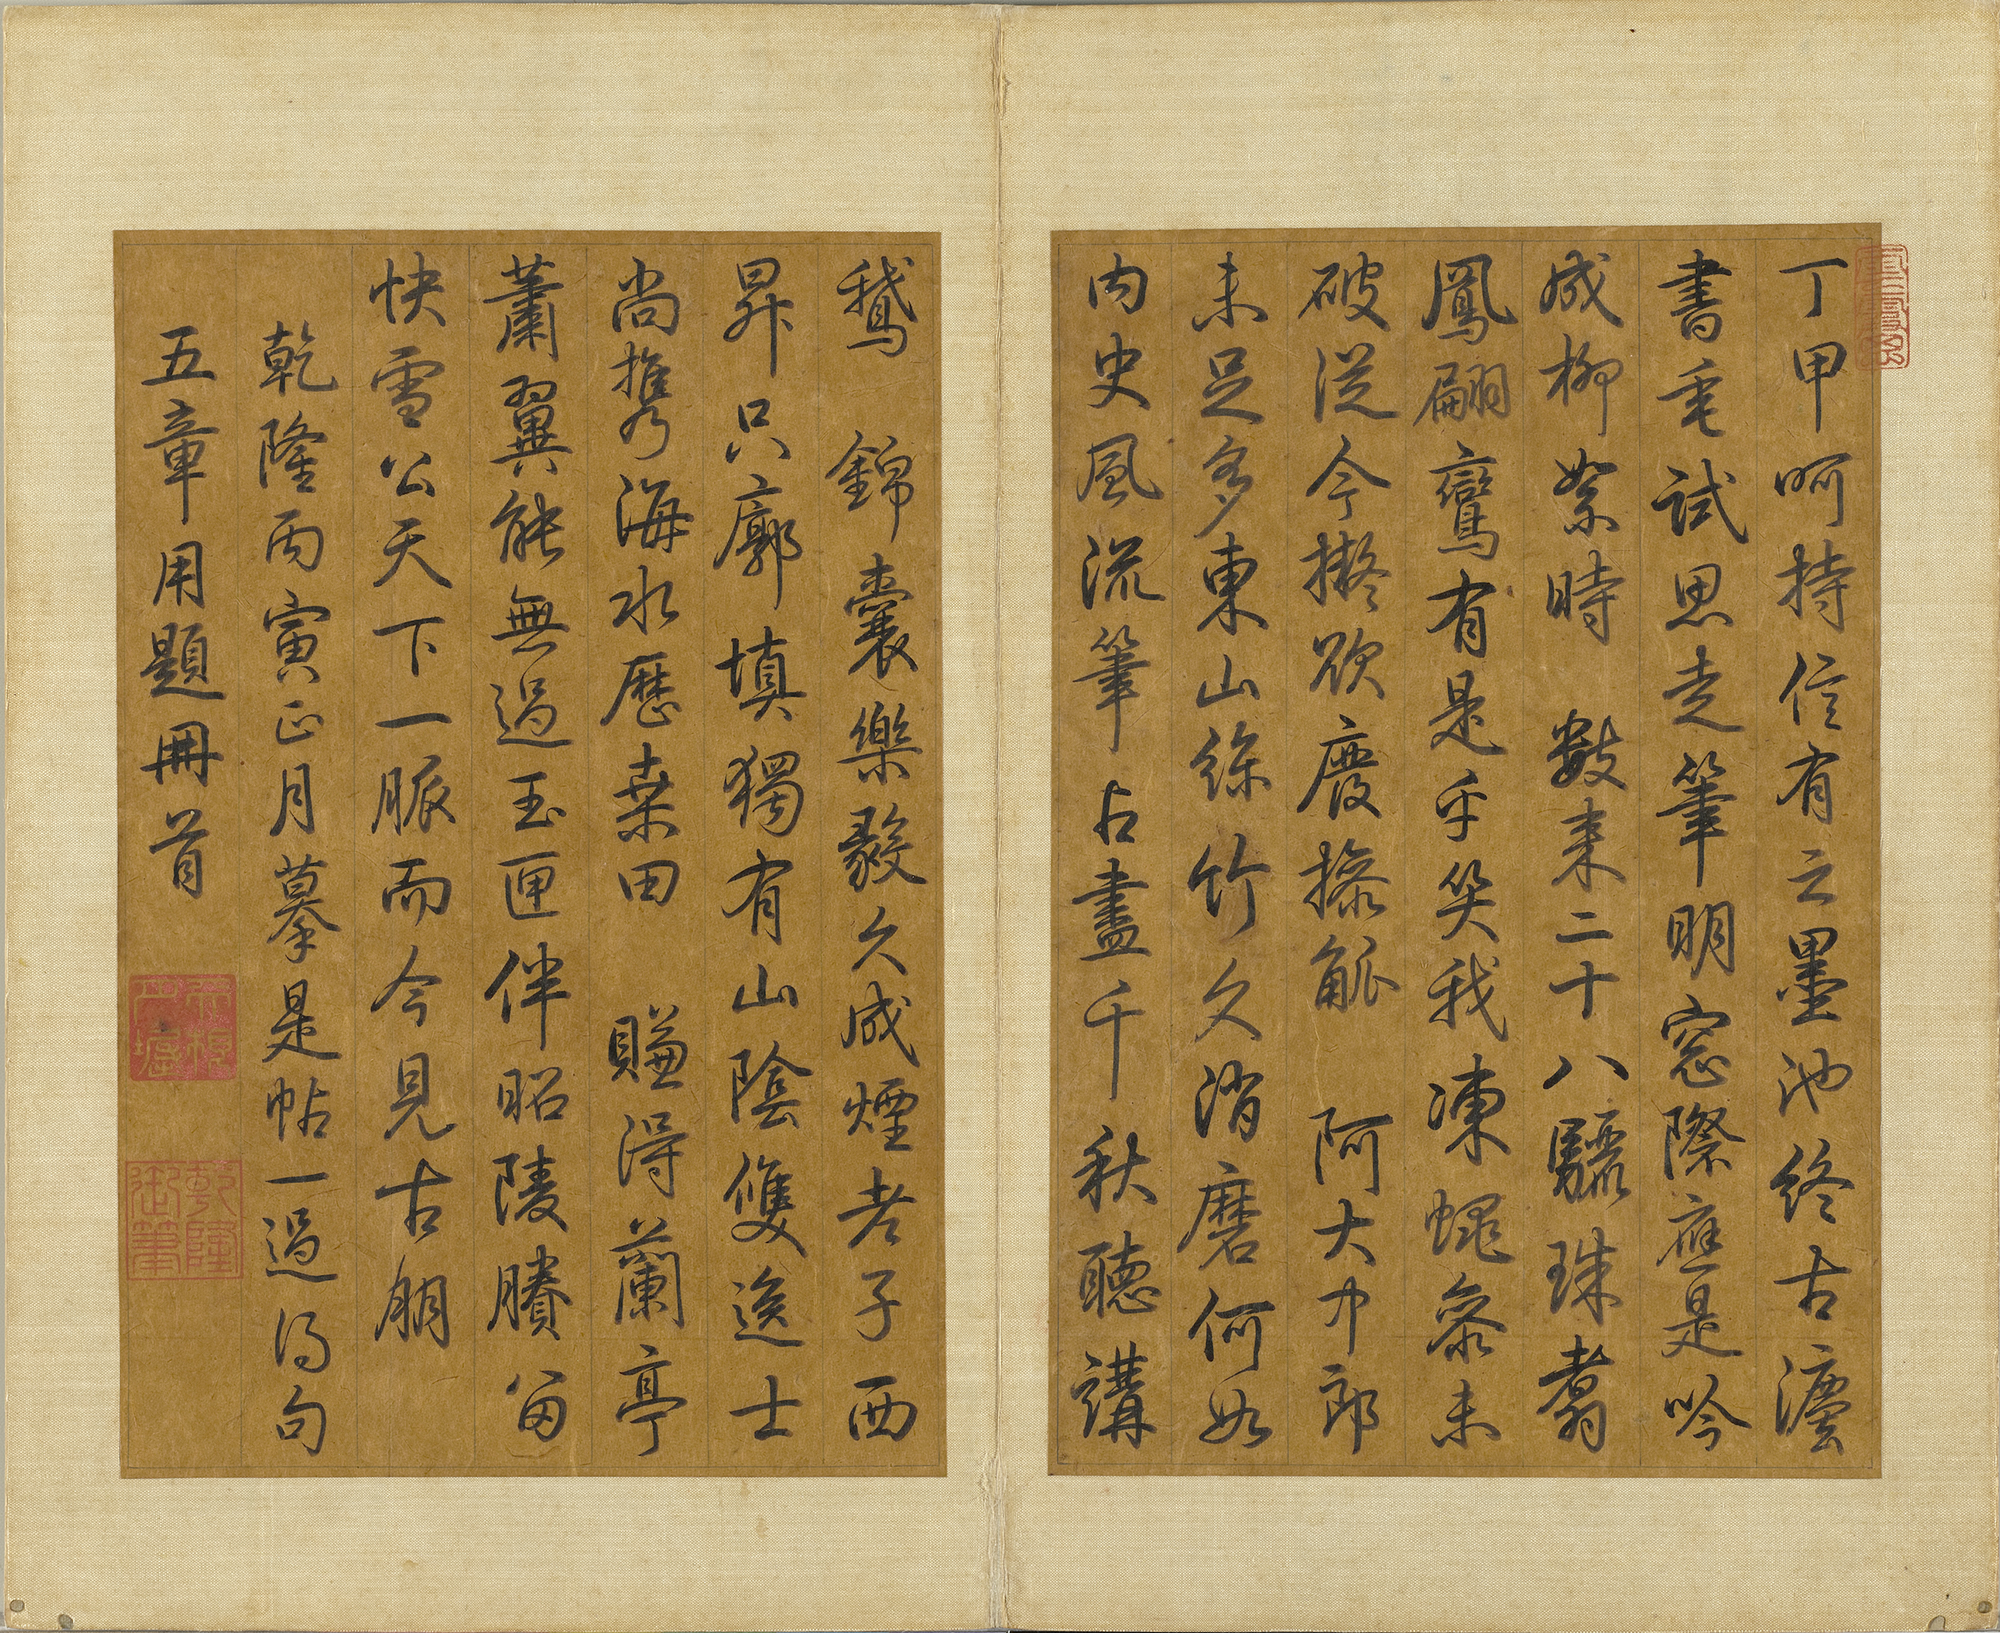 丁甲呵持信有之墨池終古灋
書垂試思走筆明窓際應是吟
成柳絮時 數来二十八驪珠翥
鳳翩鸞有是乎笑我凍蠅參未
破從今擬欲廢操觚 阿大中郎
未足多東山絲竹久消磨何如
内史風流筆占盡千秋聽講
鵝 錦囊樂毅久成煙老子西
昇只廓填獨有山陰雙逸士
尚携海水歷桒田 賺得蘭亭
蕭翼能無過玉匣伴昭陵賸留
快雪公天下一脈而今見古朋
乾隆丙寅正月摹是帖一過得句
五章用題冊首
乾隆御筆